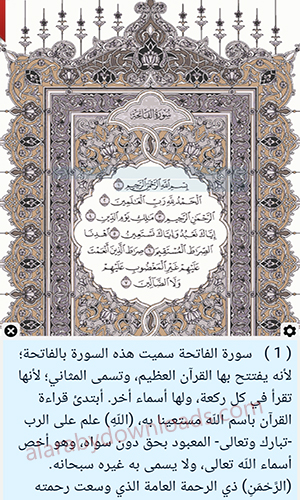 سُورَةُ الفَاتِحَةِ
بِسْمِ اللَّهِ الرَّحْمَٰنِ الرَّحِيمِ ١
الْحَمْدُ لِلَّهِ رَبِّ الْعَالَمِينَ ٢
الرَّحْمَٰنِ الرَّحِيمِ ٣ مَالِكِ يَوْمِ الدِّينِ ٤
إِيَّاكَ نَعْبُدُ وَإِيَّاكَ نَسْتَعِينُ ٥ اهْدِنَا
الصِّرَاطَ الْمُسْتَقِيمَ ٦ صِرَاطَ الَّذِينَ أَنْعَمْتَ
عَلَيْهِمْ غَيْرِ الْمَغْضُوبِ عَلَيْهِمْ
وَلَا الضَّالِّينَ ٧
( 1 ) سورة الفاتحة سميت هذه السورة بالفاتحة؛
لأنه يفتتح بها القرآن العظيم، وتسمى المثاني؛ لأنها
تقرأ في كل ركعة، ولها أسماء أخر. أبتدئ قراءة
القرآن باسم الله مستعينا به، (اللهِ) علم على الرب
-تبارك وتعالى- المعبود بحق دون سواه، وهو أخص
أسماء الله تعالى، ولا يسمى به غيره سبحانه.
(الرَّحْمَنِ) ذي الرحمة العامة الذي وسعت رحمته
alarabydownloads.com